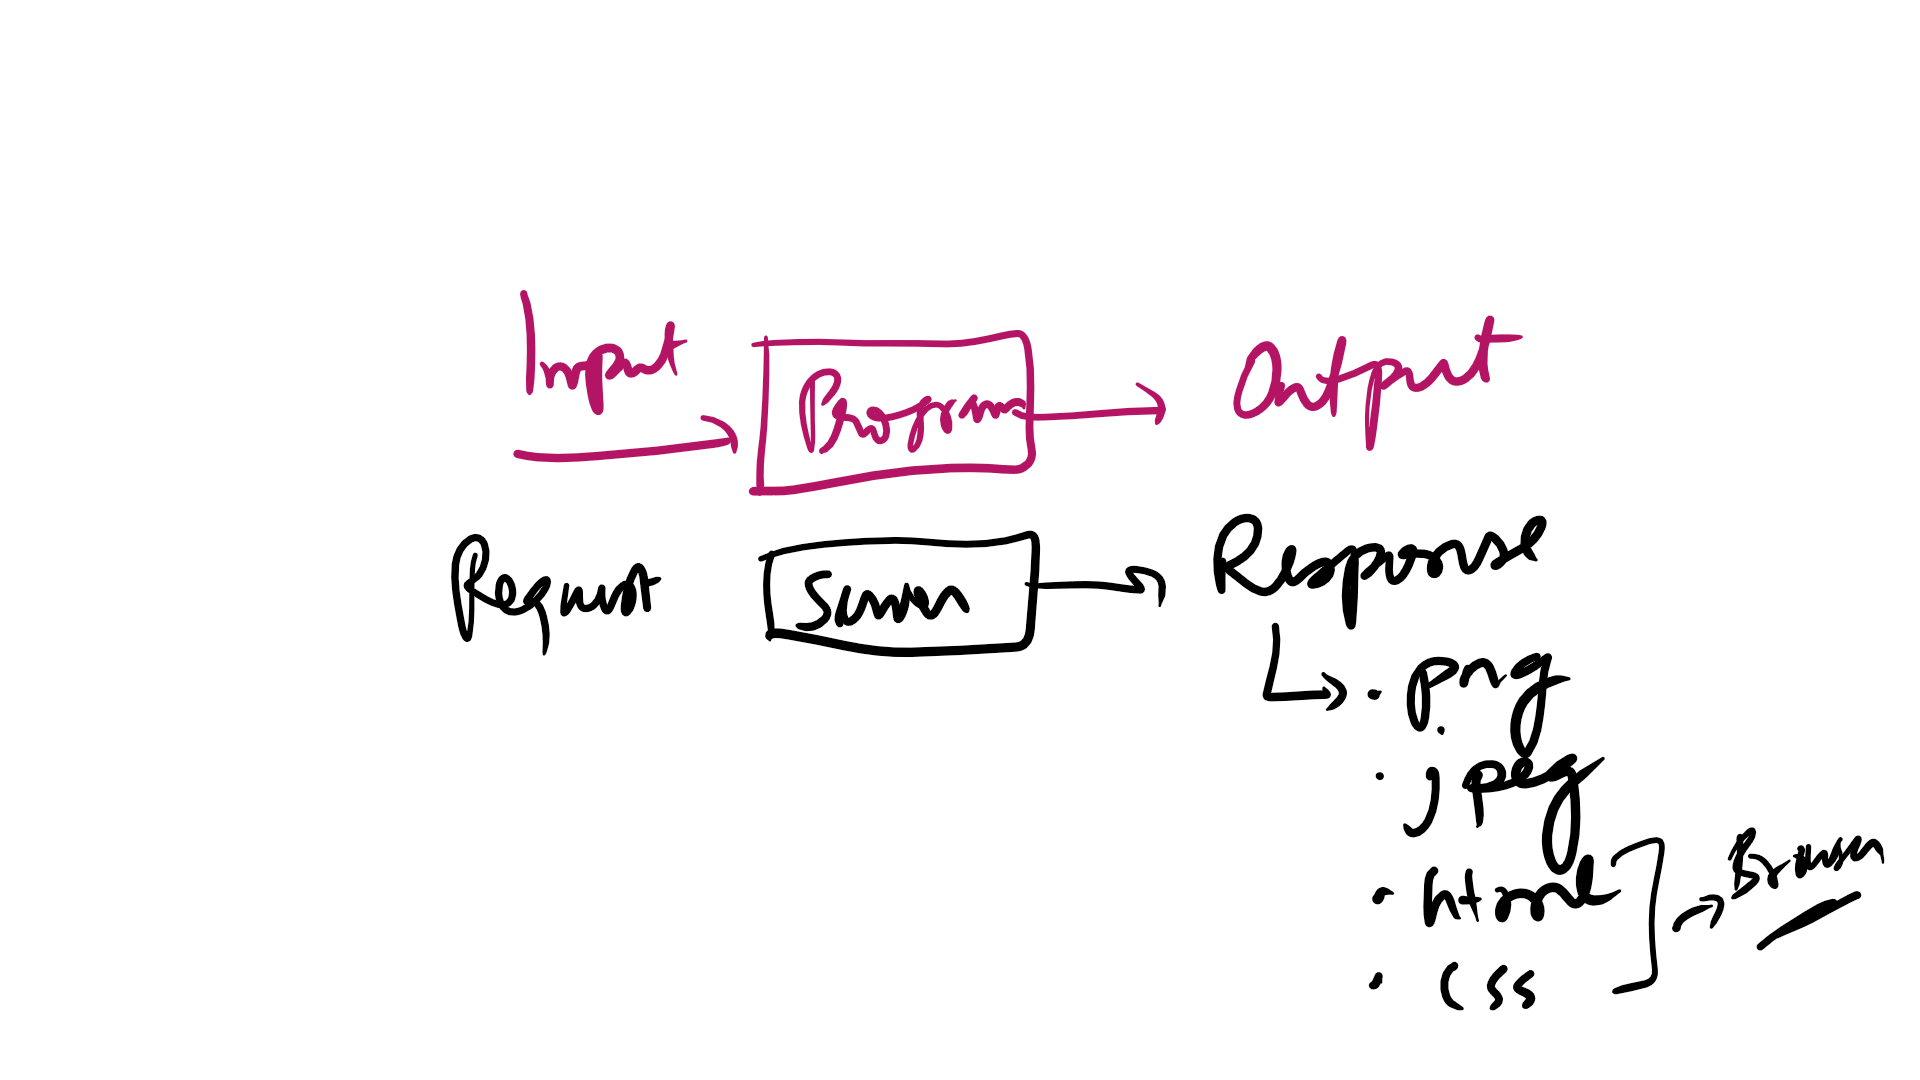 Input Program Output
Request Server Response
. png
. jpeg
. html
. css
Browser